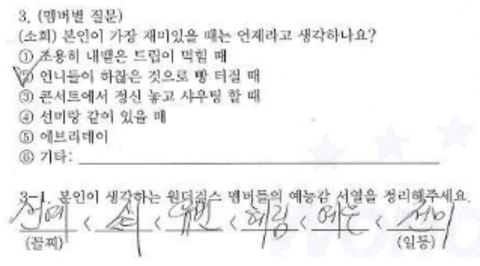 3. (멤버별 질문)
(소희) 본인이 가장 재미있을 때는 언제라고 생각하나요?
① 조용히 내뱉은 드립이 먹힐 때
② 언니들이 하찮은 것으로 빵 터질 때
③ 콘서트에서 정신 놓고 샤우팅 할 때
④ 선미랑 같이 있을 때
⑤ 에브리데이
⑥ 기타:
3-1. 본인이 생각하는 원더걸스 멤버들의 예능감 서열을 정리해주세요.
선예 < 소희 < 유빈 < 혜림 < 예은 < 선미
(꼴찌) (일등)